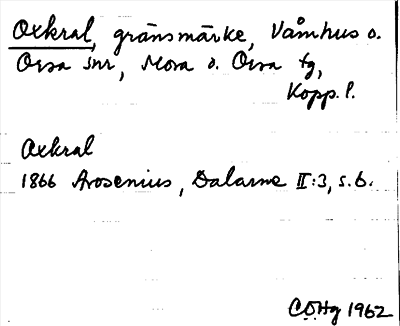 Oxkral, gränsmärke, Våmhus o.
Orsa snr, Mora o. Orsa tg,
Kopp. l.
Oxkral
1866 Arosenius, Dalarne II:3, s. 6.
CDHg 1962